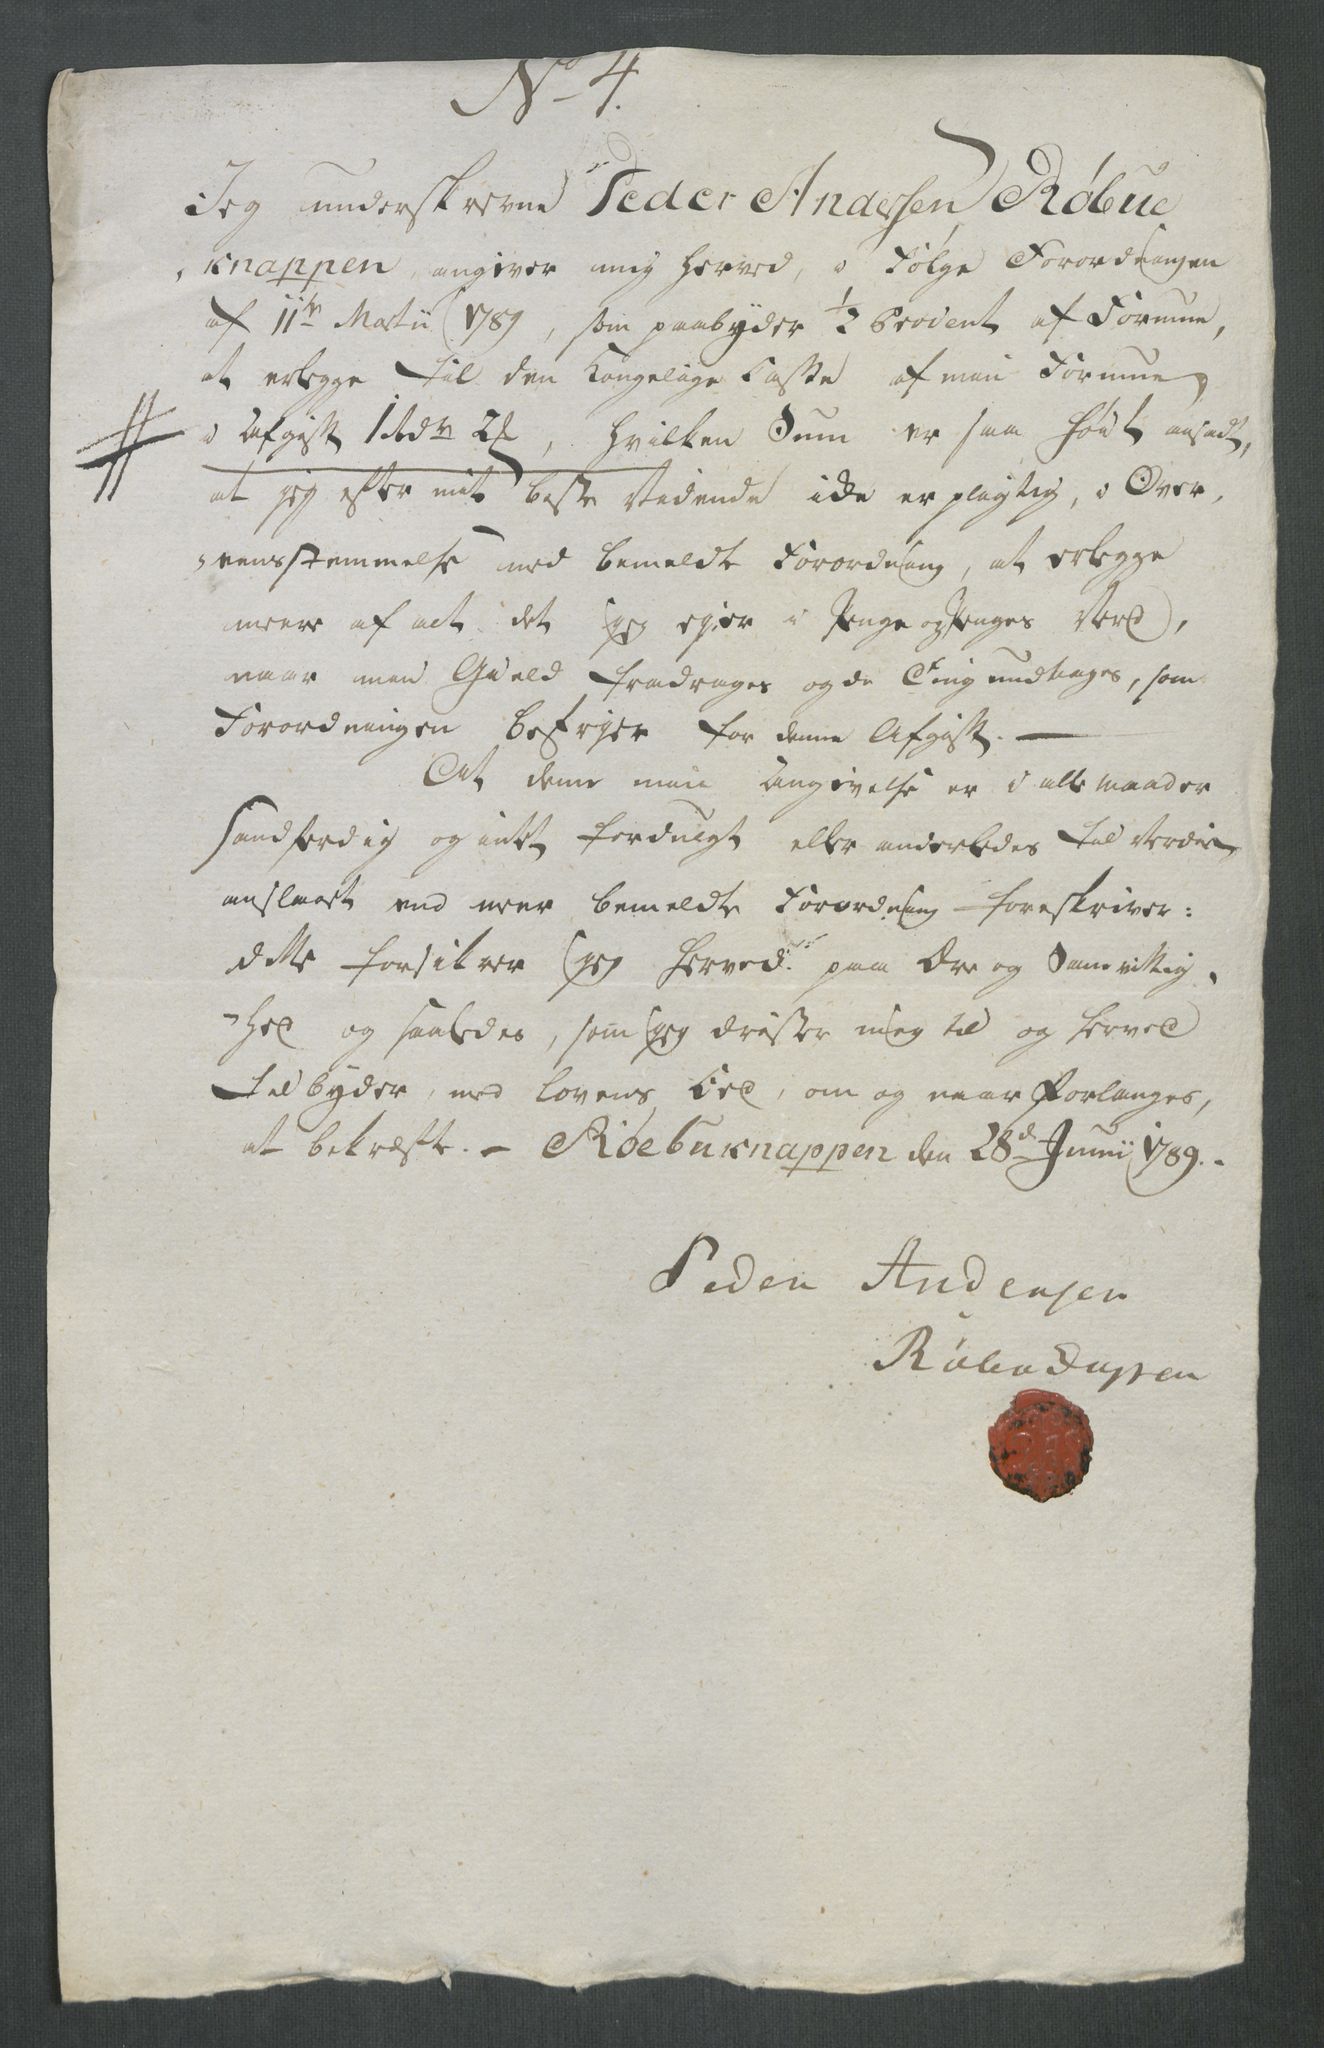 No 4.
Jeg underskrevne Peder Andersen Røbue
knappen angiver mig herved, i Følge Forordningen
af 11te Martii 1789, som paabyder 1/2 Procent af Formue,
at erlegge til den Kongelige Casse af min Formue
i Afgift 1 Rdr 2 s, hvilken Sum er saa høit ansadt,
at jeg efter mit beste Vidende ikke er plegtig, i Over,
eensstemmelse med bemeldte Forordning, at erlegge
meere af alt det jeg ejer i Penge og Penges Verd,
naar min Gield fradrages og de Ting undtages, som
Forordningen befrier for denne Afgift. —
At denne min Angivelse er i alle maader
sandferdig og intet fordulgt eller anderledes til Verdie
anslaaet end meer bemeldte Forordning foreskriver:
dette forsikrer jeg herved paa Ære og Samvittig
hed og saaledes, som jeg drister mig til og herved
tilbyder, med Lovens Eed, om og naar forlanges,
at bekræfte. - Røebuknappen den 28d Junii 1789. -
Peder Andersen
Røbuknappen